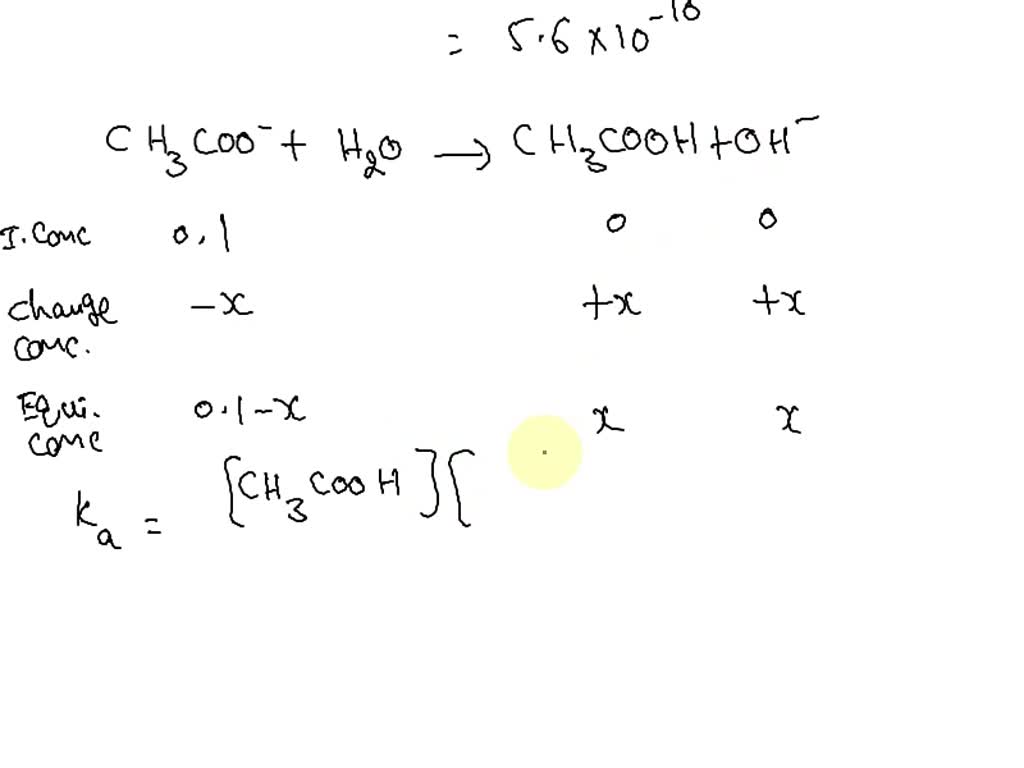 = 5.6 × 10⁻¹⁰
CH₃COO⁻ + H₂O → CH₃COOH + OH⁻
I. Conc 0.1 0 0
Change conc. -x +x +x
Equi. conc 0.1-x x x
kₐ = [CH₃COOH][